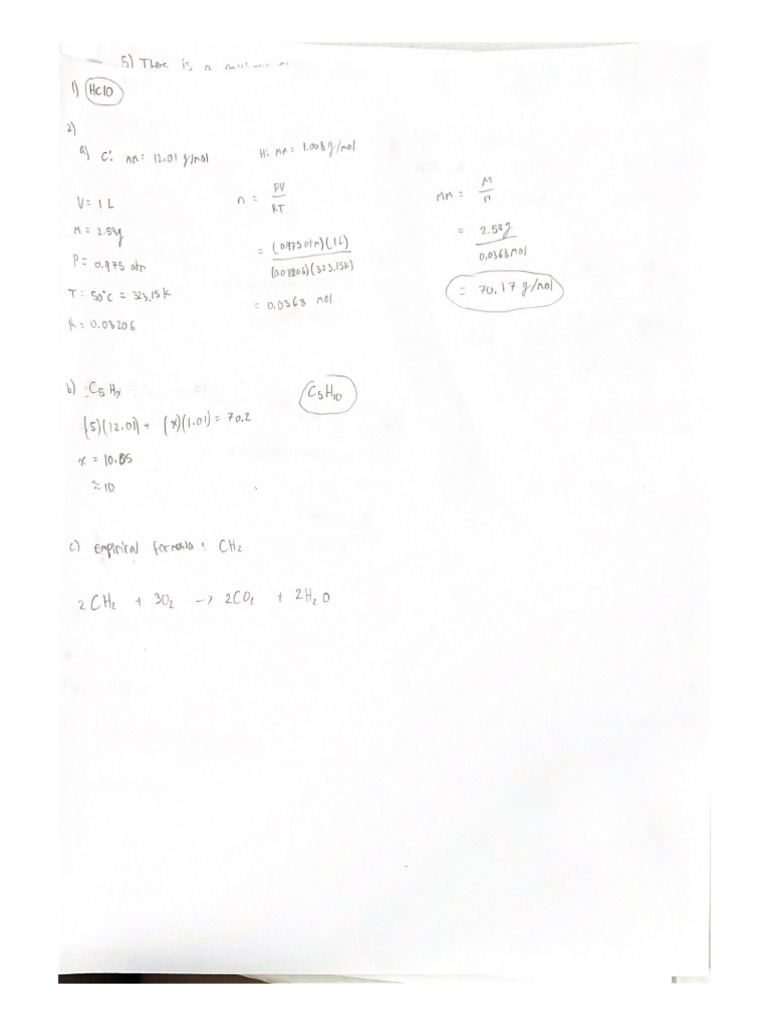 5) There is a
1) HClO
2)
a) C: MM = 12.01 g/mol
H: MM = 1.008 g/mol
V = 1 L
M = 2.58g
P = 0.975 atm
T = 50°C = 323.15 K
R = 0.08206
n = PV
RT
= (0.975 atm)(1L)
(0.08206)(323.15K)
= 0.0368 mol
MM = M
n
= 2.58g
0.0368 mol
= 70.17 g/mol
b) C5Hx
(5)(12.01) + (x)(1.01) = 70.2
x = 10.05
≈ 10
C5H10
c) empirical formula: CH2
2CH2 + 3O2 → 2CO2 + 2H2O